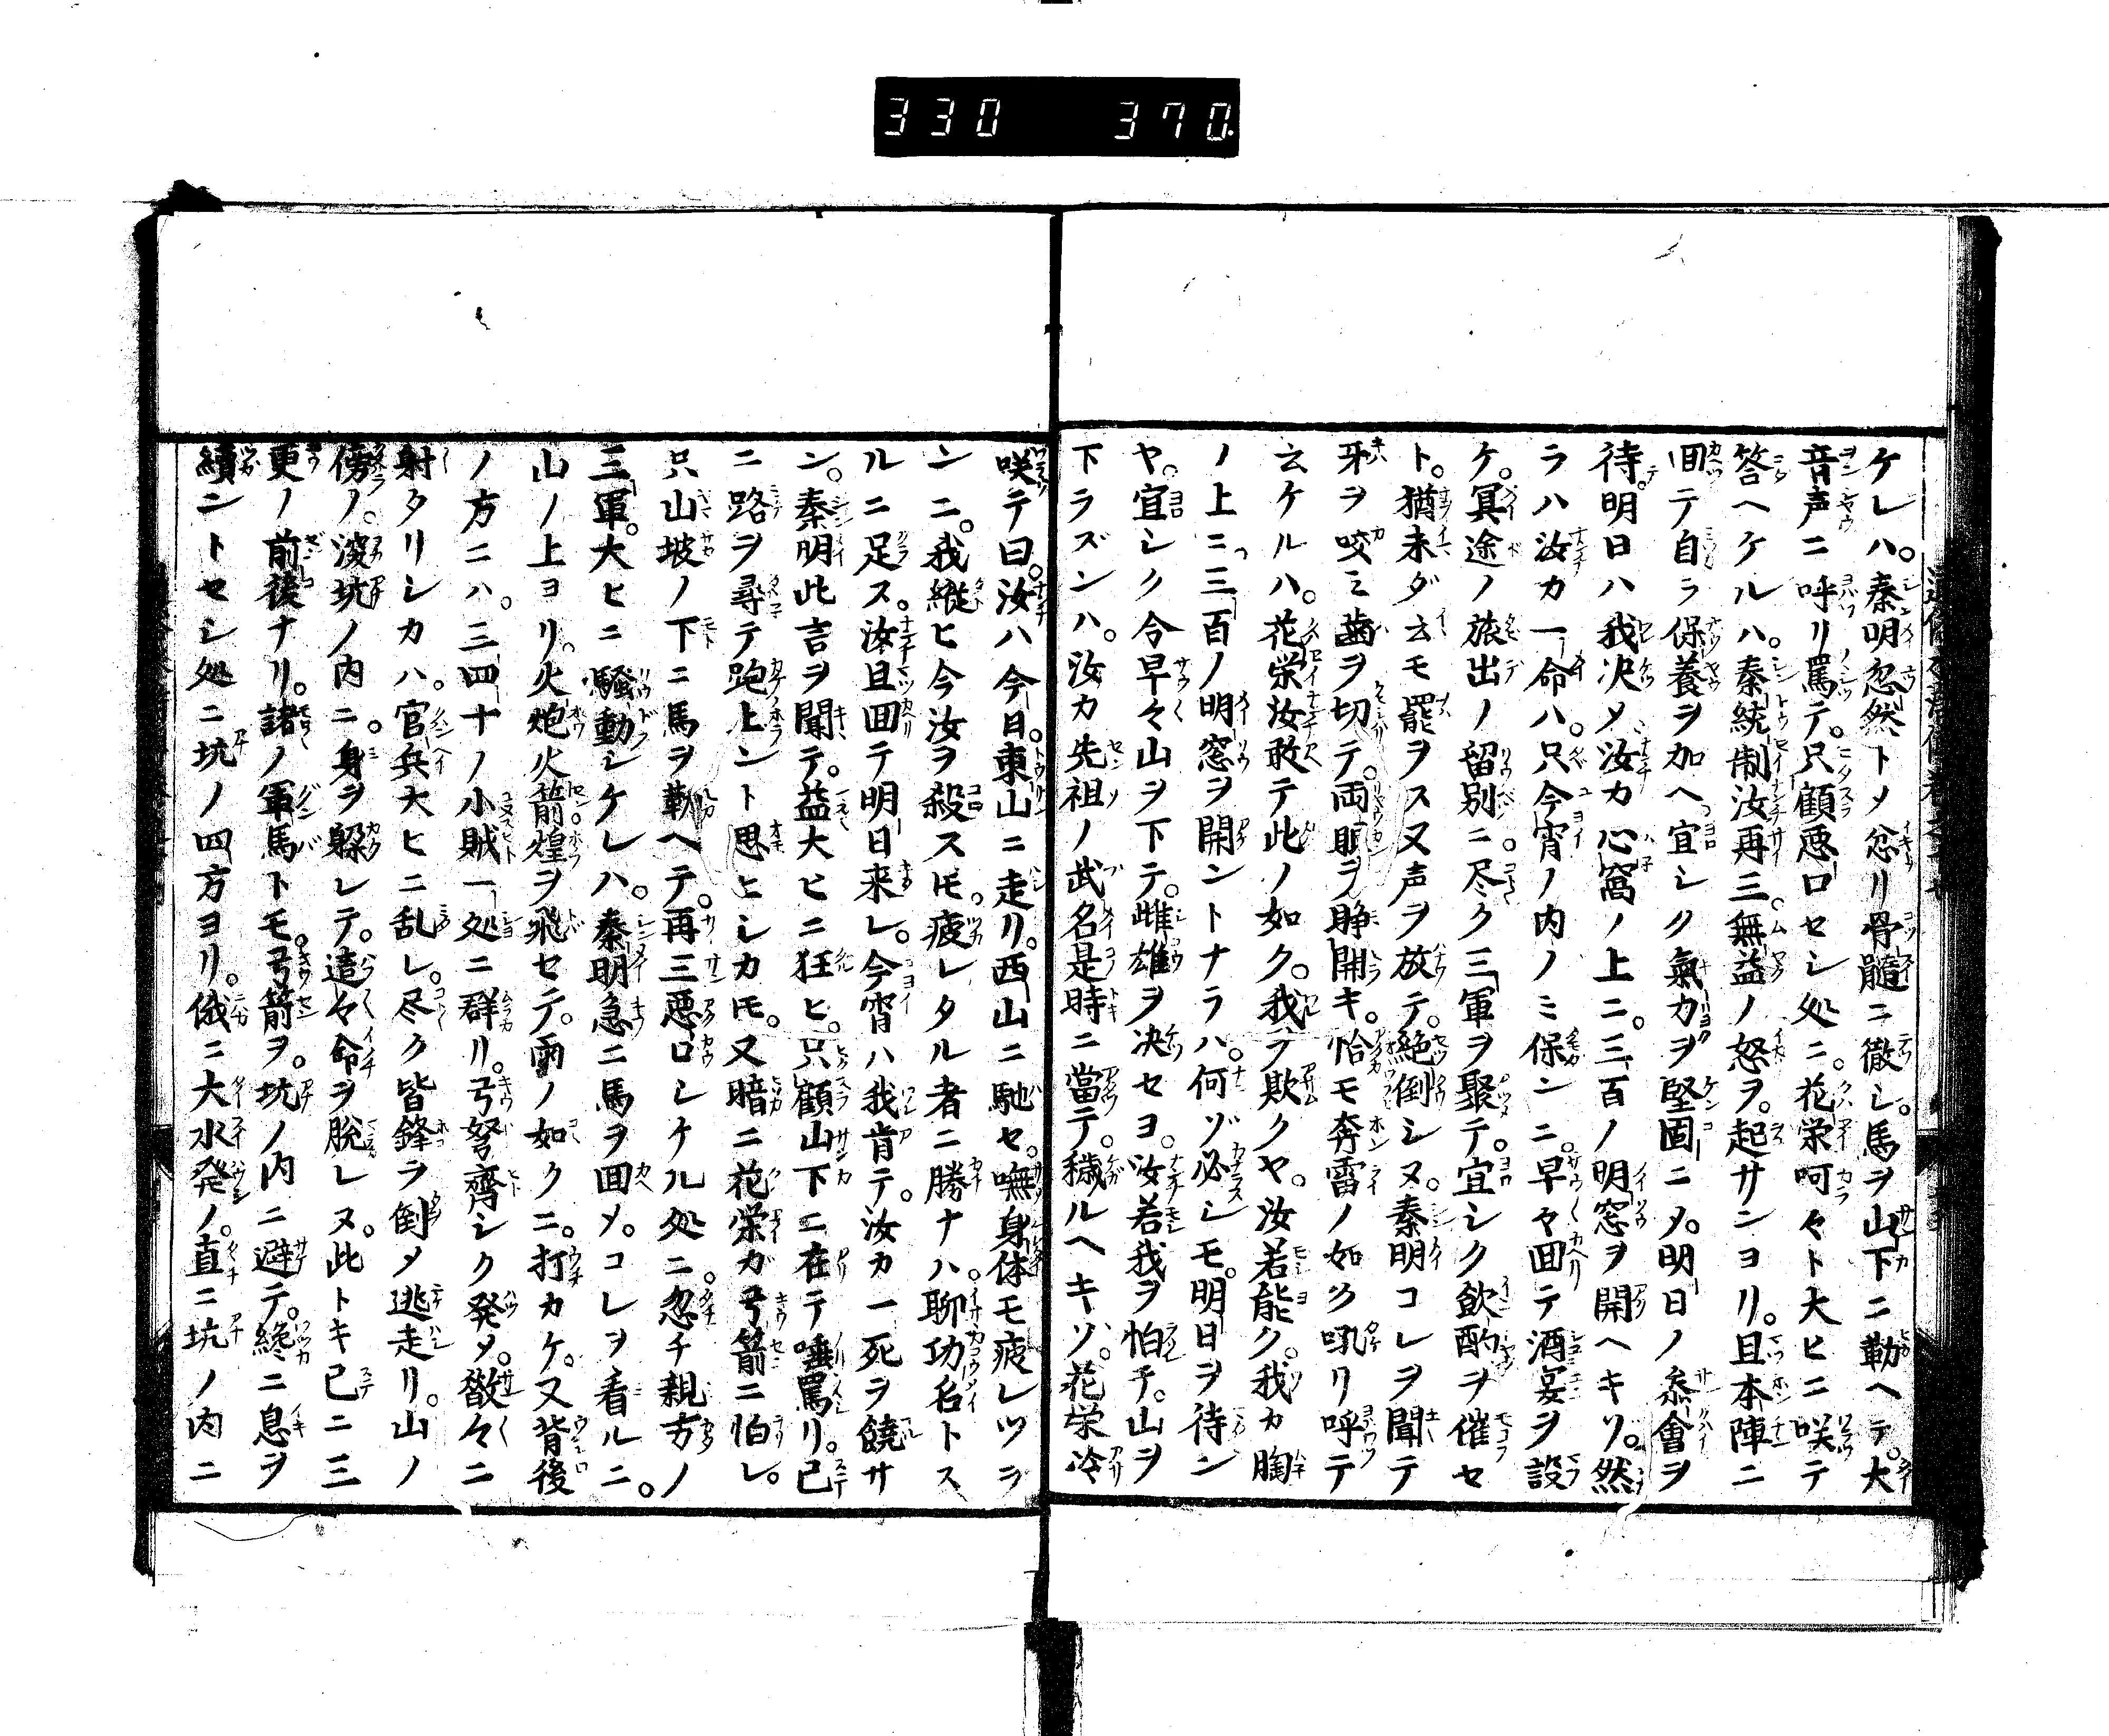 330 370
ケレハ。秦明忽然トメ忿リ骨髓ニ徹シ。馬ヲ山下ニ勒ヘテ。大
音声ニ呼リ罵テ。只顧悪口セシ処ニ。花栄呵々ト大ヒニ咲テ
答ヘケルハ。秦統制汝再三。無益ノ怒ヲ。起サンヨリ。且本陣ニ
囬テ自ラ保養ヲ加ヘ宜シク氣力ヲ堅固ニメ。明日ノ叅會ヲ
待。明日ハ我决メ汝カ心窩ノ上ニ。三百ノ明窓ヲ開ヘキソ。然
ラハ汝カ一命ハ。只今宵ノ内ノミ保ンニ。早々囬テ酒宴ヲ設
ケ。冥途ノ旅出ノ留別ニ。尽ク三軍ヲ聚テ。宜シク飲酌ヲ催セ
ト。猶未ダ云モ罷ヲス又声ヲ放テ。絶倒シヌ。秦明コレヲ聞テ
牙ヲ咬ミ歯ヲ切テ。両眼ヲ睁開キ。恰モ奔雷ノ如ク吼リ呼テ
云ケルハ。花栄汝敢テ此ノ如ク。我ヲ欺クヤ。汝若能ク。我カ胸
ノ上ニ三百ノ明窓ヲ開ントナラハ。何ゾ必シモ。明日ヲ待ン
ヤ。宜シク今早々山ヲ下テ。雌雄ヲ决セヨ。汝若我ヲ怕チ。山ヲ
下ラズンハ。汝カ先祖ノ武名是時ニ當テ。穢ルヘキソ。花栄冷
咲テ曰。汝ハ今日。東山ニ走リ。西山ニ馳セ。嘸身体モ疲レツラ
ンニ。我縦ヒ今汝ヲ殺スモ。疲レタル者ニ勝ナハ。聊功名トス
ルニ足ス。汝且囬テ明日来レ。今宵ハ我肯テ。汝カ一死ヲ饒サ
ン。秦明此言ヲ聞テ。益大ヒニ狂ヒ。只顧山下ニ在テ唾罵リ。已
ニ路ヲ尋テ跑上ント思ヒシカモ。又暗ニ花栄ガ弓箭ニ怕レ。
只山坡ノ下ニ馬ヲ勒ヘテ。再三悪口シケル処ニ。忽チ親方ノ
三軍。大ヒニ騒動シケレハ。秦明急ニ馬ヲ囬メ。コレヲ看ルニ。
山ノ上ヨリ。火炮火箭煌ヲ飛セテ。雨ノ如クニ。打カケ。又背後
ノ方ニハ。三四十ノ小賊一処ニ群リ。弓弩齊シク発メ。散々ニ
射タリシカハ。官兵大ヒニ乱レ。尽ク皆鋒ヲ倒メ逃走リ。山ノ
傍ノ。深坑ノ内ニ。身ヲ躱レテ。這々命ヲ脱レヌ。此トキ已ニ三
更ノ前後ナリ。諸ノ軍馬トモ。弓箭ヲ。坑ノ内ニ避テ。纔ニ息ヲ
續ントセシ処ニ坑ノ四方ヨリ。俄ニ大水発ノ。直ニ坑ノ内ニ